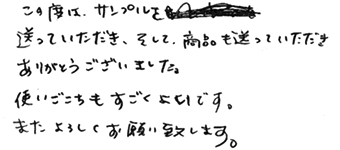 この度は、サンプルを
送っていただき、そして、商品も送っていただき
ありがとうございました。
使いごこちもすごくよいです。
またよろしくお願い致します。